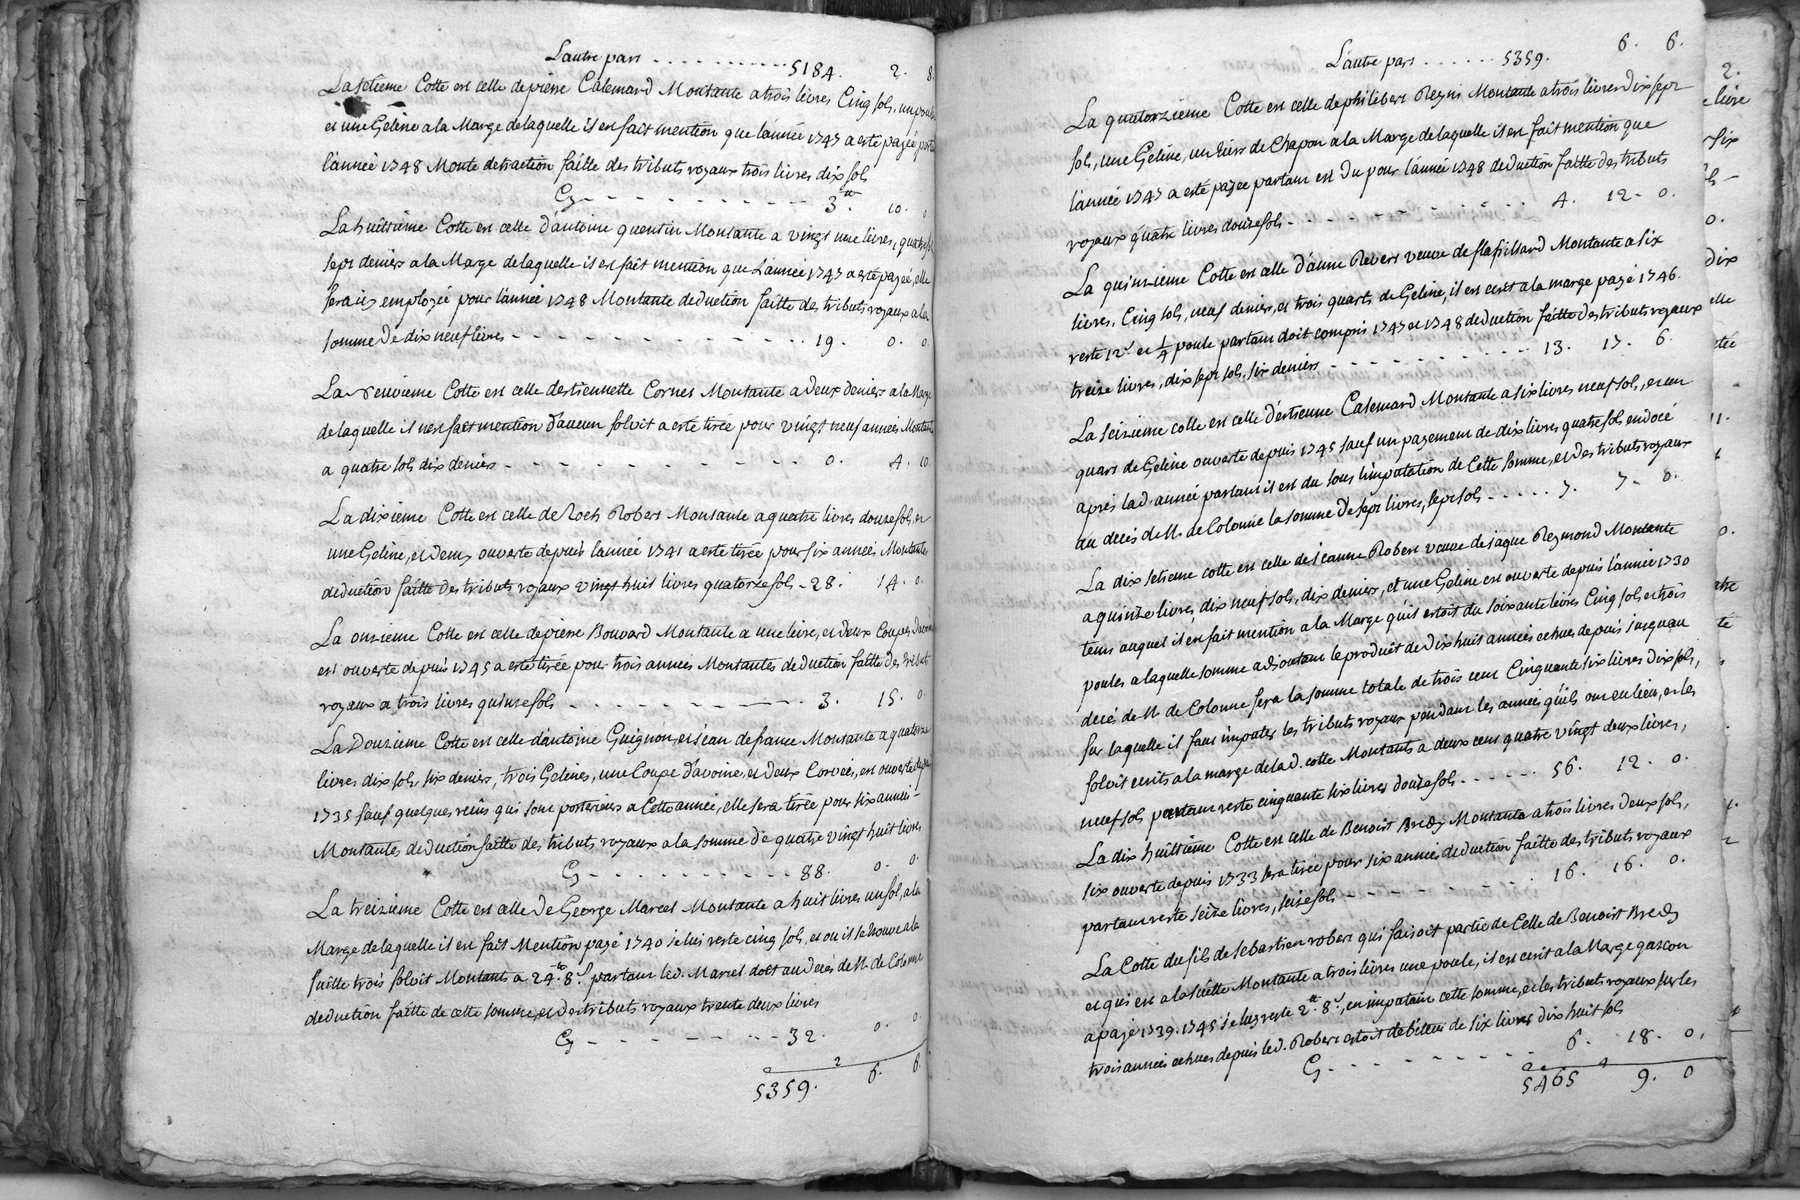 L'autre pars . . . . . . . . . . . 5184. 2. 8.
La setieme Cotte est celle de pierre Calemard Montante a trois livres Cinq sols, un
et une Geline a la Marge de laquelle il est fait mention que l'année 1747 a esté payée
l'année 1748 Monte detraction faitte des tributs royaux trois livres dix sols
Cy - - - - - - - - - - 3.tt 10. 0
La huitieme Cotte est celle d'antoine quentin Montante a vingt une livres, quatre
sept deniers a la Marge de laquelle il est fait mention que L'année 1747 a esté payée, elle
sera icy employée pour l'année 1748 Montante deduction faitte des tributs royaux a la
somme de dix neuf livres - - - - - - - - - - - - 19. 0. 0.
La Neuvieme Cotte est celle destiennette Cornet Montante a deux deniers a la Marge
de laquelle il n'est fait mention d'aucun soloit a esté tirée pour vingt neuf années Montant
a quatre sols dix deniers - - - - - - - - - - - 0. 4. 10
La dixieme Cotte est celle de Roch Robert Montante a quatre livres douze sols, et
une Geline, et demy ouverte depuis l'année 1741 a esté tirée pour six années Montantes
deduction faitte des tributs royaux vingt huit livres quatorze sols - 28. 14. 0.
La onzieme Cotte est celle de pierre Bouvard Montante a une livre, et deux Coupes d'avoine
est ouverte depuis 1745 a esté tirée pour trois années Montantes deduction faitte des tributs
royaux a trois livres quinze sols - - - - - - - - 3. 15. 0
La Douzieme Cotte est celle d'antoine Guignon, et jean de france Montante a quatorze
livres dix sols, six deniers, trois Gelines, une Coupe d'avoine, et deux Corvées, est ouverte depuis
1735 sauf quelques recûs qui sont posterieurs a Cette année, elle sera tirée pour six années
Montantes deduction faitte des tributs royaux a la somme de quatre vingt huit livres
Cy - - - - - - - - - - 88. 0. 0.
La treizieme Cotte est celle de George Marcel Montante a huit livres un sol, a la
Marge de laquelle il est fait Mention payé 1740 je luis reste cinq sols, et ou il se trouve a la
suitte trois soloit Montants a 24.tt 8.s partant led. Marcel doit au decés de M. de Colonne
deduction faitte de cette somme, et des tributs royaux trente deux livres
Cy - - - - - - - - 32. 0. 0.
5359. 6. 6.
L'autre pars . . . . . . 5359. 6. 6.
La quatorzieme Cotte est celle de philibert Reyni Montante a trois livres dix sept
sols, une Geline, un tiers de Chapon a la Marge de laquelle il est fait mention que
l'année 1747 a esté payée partant est du pour l'année 1748 deduction faitte des tributs
royaux quatre livres douze sols - - - - - - - - - - 4. 12. 0.
La quinzieme Cotte est celle d'anne Revers veuve de Montante a six
livres, Cinq sols, neuf deniers, et trois quarts de Geline, il est ecrit a la marge payé 1746
reste 12.s et 1/4 poule partant doit compris 1747 et 1748 deduction faitte des tributs royaux
treize livres, dix sept sols, six deniers - - - - - - - - - 13. 17. 6.
La seizieme cotte est celle d'estienne Calemard Montante a six livres neuf sols, et un
quart de Geline ouverte depuis 1745 sauf un payement de dix livres quatre sols endocé
après lad. année partant il est du sous l'imputation de Cette somme, et des tributs royaux
au decés de M. de Colonne la somme de sept livres, sept sols - - - - - 7. 7. 0.
La dix setieme cotte est celle de jeanne Robert veuve de jaque Reymond Montante
a quinze livres, dix neuf sols, dix deniers, et une Geline est ouverte depuis l'année 1730
tems auquel il est fait mention a la Marge qu'il estoit du soixante livres Cinq sols et trois
poules a laquelle somme adjoutant le produit de dix huit années echues depuis jusqu'au
decés de M. de Colonne sera la somme totale de trois cent Cinquante six livres dix sols,
sur laquelle il faut imputer les tributs royaux pendant les années qu'ils ont eu lieu, et les
soloit ecrits a la marge de lad. cotte Montants a deux cens quatre vingt deux livres,
neuf sols partant reste cinquante six livres douze sols - - - - - - 56. 12. 0.
La dix huitieme Cotte est celle de Benoist Bredy Montante a trois livres deux sols,
six ouverte depuis 1733 sera tirée pour six années deduction faitte des tributs royaux
partant reste seize livres, seize sols - - - - - - - - - 16. 16. 0.
La Cotte du fils de sebastien robert qui faisoit partie de Celle de Benoist Bredy
et qui est a la suitte Montante a trois livres une poule, il est ecrit a la Marge gascon
a payé 1739. 1745 je luy reste 2.tt 8.s, en imputant cette somme, et les tributs royaux sur les
trois années echues depuis led. Robert estoit debiteur de six livres dix huit sols
Cy - - - - - - - - 6. 18. 0.
5465 9. 0